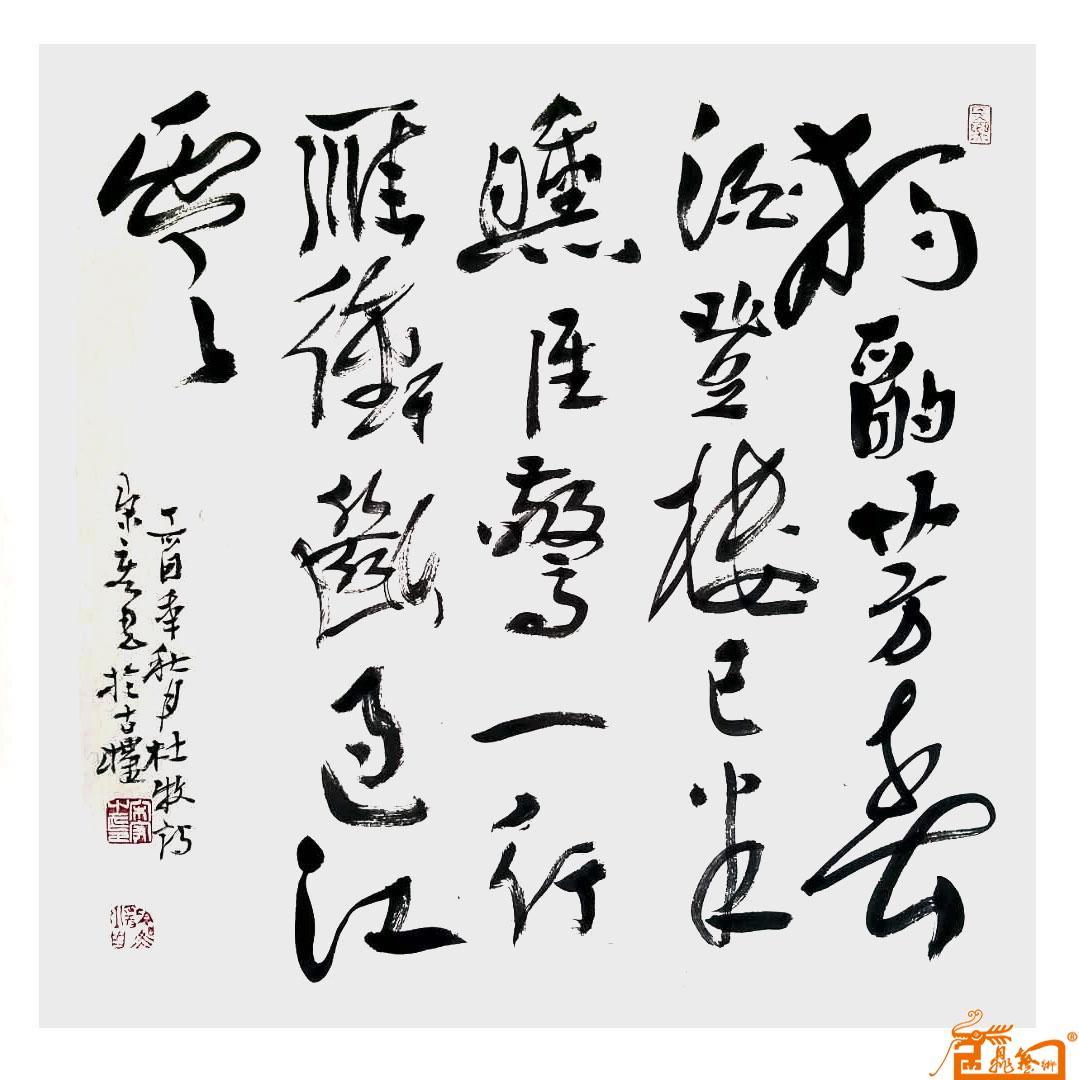 獨酌芳春
酒登樓已半
醺誰驚一行
雁衝斷過江
雲
丁酉年秋月杜牧詩
書於古
藝術
®